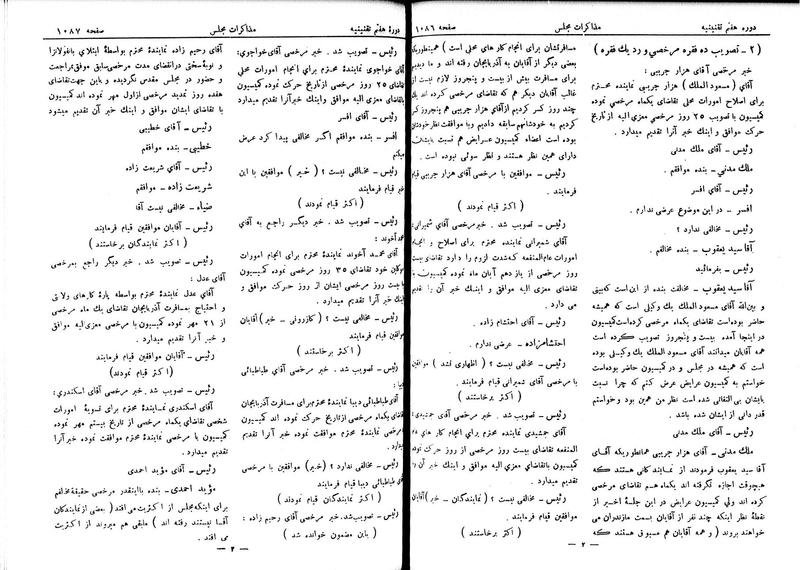 دوره هفتم تقنینیه
مذاکرات مجلس
صفحه ۱۰۸۶
( ۲ - تصویب ده فقره مرخصی و رد یك فقره )
خبر مرخصی آقای هزار جریبی :
آقای ( مسعود الملك ) هزار جریبی نماینده محترم
برای اصلاح امورات محلی تقاضای یكماه مرخصی نموده
كمیسیون با تصویب ۲۵ روز مرخصی معزی الیه از تاریخ
حركت موافق و اینك خبر آنرا تقدیم میدارد .
رئیس - آقای ملك مدنی
ملك مدنی - بنده موافقم .
رئیس - آقای افسر
افسر - در این موضوع عرضی ندارم .
رئیس - مخالفی ندارد ؟
آقا سید یعقوب - بنده مخالفم .
رئیس - بفرمائید
آقا سید یعقوب - مخالفت بنده از این است كه بینی
و بین الله آقای مسعود الملك یك وكیلی است كه همیشه
حاضر بوده است تقاضای یكماه مرخصی كرده است كمیسیون
در اینجا آمده بیست و پنجروز تصویب كرده است
همه آقایان میدانند آقای مسعود الملك یك وكیلی بوده
است كه همیشه در مجلس و در كمیسیون حاضر بوده است
خواستم به كمیسیون عرایض عرض كنم كه چرا نسبت
بایشان بی التفاتی شده است نظر من همین بود و خواستم
قدر دانی از ایشان شده باشد .
رئیس - آقای ملك مدنی
ملك مدنی - آقای هزار جریبی همانطوریكه آقای
آقا سید یعقوب فرمودند از نمایندگانی هستند كه
هیچوقت اجازه نگرفته اند یكماه هم تقاضای مرخصی
كرده اند ولی كمیسیون عرایض در این جلسهٔ اخیر از
نقطهٔ نظر اینكه چند نفر از آقایان بسمت مازندران می
خواهند بروند ( و همه آقایان هم مسبوق هستند كه
مسافرتشان برای انجام كار های محلی است ) همینطوریكه
بعضی دیگر از آقایان به آذربایجان رفته اند و ما دیدیم
برای مسافرت بیش از بیست و پنجروز لازم نیست از
غالب آقایان دیگر هم كه تقاضای مرخصی كرده اند یك
چند روز كسر كردیم از آقای هزار جریبی هم پنجروز كسر
كردیم به خودشان هم سابقه دادیم و با موافقت نظر خودشان
بوده است اعضاء كمیسیون عرایض هم نسبت بایشان
دارای همین نظر هستند و نظر سوئی نبوده است .
رئیس - موافقین با مرخصی آقای هزار جریبی قیام
فرمایند .
( اكثر قیام نمودند )
رئیس - تصویب شد . خبر مرخصی آقای شیروانی:
آقای شیروانی نماینده محترم برای اصلاح و انجام
امورات عام المنفعه كه شدت لزوم را دارد تقاضای بیست
روز مرخصی از یازدهم آبان ماه نموده كمیسیون با
تقاضای معزی الیه موافق و اینك خبر آن را تقدیم
می دارد .
رئیس - آقای احتشام زاده .
احتشامزاده - عرضی ندارم .
رئیس - مخالفی نیست ؟ ( اظهاری نشد ) موافقین
با مرخصی آقای شیروانی قیام فرمایند
( اكثر برخاستند )
رئیس - تصویب شد . خبر مرخصی آقای جمشیدی:
آقای جمشیدی نماینده محترم برای انجام كار های عام
المنفعه تقاضای بیست روز مرخصی از روز حركت نموده
كمیسیون با تقاضای معزی الیه موافق و اینك خبر آن را
تقدیم میدارد .
رئیس - مخالفی نیست ؟ ( نمایندگان - خیر ) آقایان
موافقین قیام فرمایند .
( اكثر برخاستند )
— ۲ —
دورهٔ هفتم تقنینیه
مذاكرات مجلس
صفحه ۱۰۸۷
رئیس - تصویب شد . خبر مرخصی آقای خواجوی:
آقای خواجوی نمایندهٔ محترم برای انجام امورات محلی
تقاضای ۲۵ روز مرخصی از تاریخ حركت نموده كمیسیون
با تقاضای معزی الیه موافق و اینك خبر آنرا تقدیم میدارد
رئیس - آقای افسر
افسر - بنده موافقم اگر مخالفی پیدا كرد عرض
میكنم
رئیس - مخالفی نیست ؟ ( خیر ) موافقین با این
خبر قیام فرمایند
( اكثر قیام نمودند )
رئیس - تصویب شد . خبر دیگر راجع به آقای
محمد آخوند :
آقای محمد آخوند نمایندهٔ محترم برای انجام امورات
موكلین خود تقاضای ۳۵ روز مرخصی نموده كمیسیون
با بیست روز مرخصی ایشان از روز حركت موافق و
اینك خبر آنرا تقدیم میدارد .
رئیس - مخالفی نیست ؟ ( كازرونی - خیر ) آقایان
موافقین قیام فرمایند
( اكثر برخاستند )
رئیس - تصویب شد . خبر مرخصی آقای طباطبائی
دیبا :
آقای طباطبائی دیبا نماینده محترم برای مسافرت آذربایجان
تقاضای یكماه مرخصی از تاریخ حركت نموده اند كمیسیون
با مرخصی نمایندهٔ محترم موافقت نموده خبر آنرا تقدیم
میدارد .
رئیس - مخالفی ندارد ؟ ( خیر ) موافقین با مرخصی
آقای طباطبائی دیبا قیام فرمایند
( اكثر نمایندگان قیام نمودند )
رئیس - تصویب شد . خبر مرخصی آقای رحیم زاده :
( باین مضمون خوانده شد )
آقای رحیم زاده نمایندهٔ محترم بواسطهٔ ابتلای با نفولانزا
و نوبهٔ سخت در انقضای مدت مرخصی سابق موفق بمراجعت
و حضور در مجلس مقدس نگردیده و باین جهت تقاضای
هفده روز تمدید مرخصی از اول مهر نموده اند كمیسیون
با تقاضای ایشان موافق و خبر آن تقدیم میشود
رئیس - آقای خطیبی
خطیبی - بنده موافقم
رئیس - آقای شریعت زاده
شریعت زاده - موافقم
ضیاء - مخالفی نیست آقا
رئیس - آقایان موافقین قیام فرمایند
( اكثر نمایندگان برخاستند )
رئیس - تصویب شد . خبر دیگر راجع بمرخصی
آقای عدل :
آقای عدل نمایندهٔ محترم بواسطه پارهٔ كار های ولایتی
و احتیاج بمسافرت آذربایجان تقاضای یك ماه مرخصی
از ۲۱ مهر نموده كمیسیون با مرخصی معزی الیه موافق
و خبر آنرا تقدیم میدارد .
رئیس - آقایان موافقین قیام فرمایند
( اكثر قیام نمودند )
رئیس - تصویب شد . خبر مرخصی آقای اسكندری:
آقای اسكندری نمایندهٔ محترم برای تسویهٔ امورات
شخصی تقاضای یكماه مرخصی از تاریخ بیستم مهر نموده
كمیسیون با مرخصی نمایندهٔ محترم موافقت نموده خبر آنرا
تقدیم میدارد .
رئیس - آقای مؤید احمدی
مؤید احمدی - بنده با اینقدر مرخصی حقیقة مخالفم
برای اینكه مجلس از اكثریت می افتد ( بعضی از نمایندگان
آقا نیستند رفته اند ) مابقی هم میروند از اكثریت
می افتد .
— ۳ —